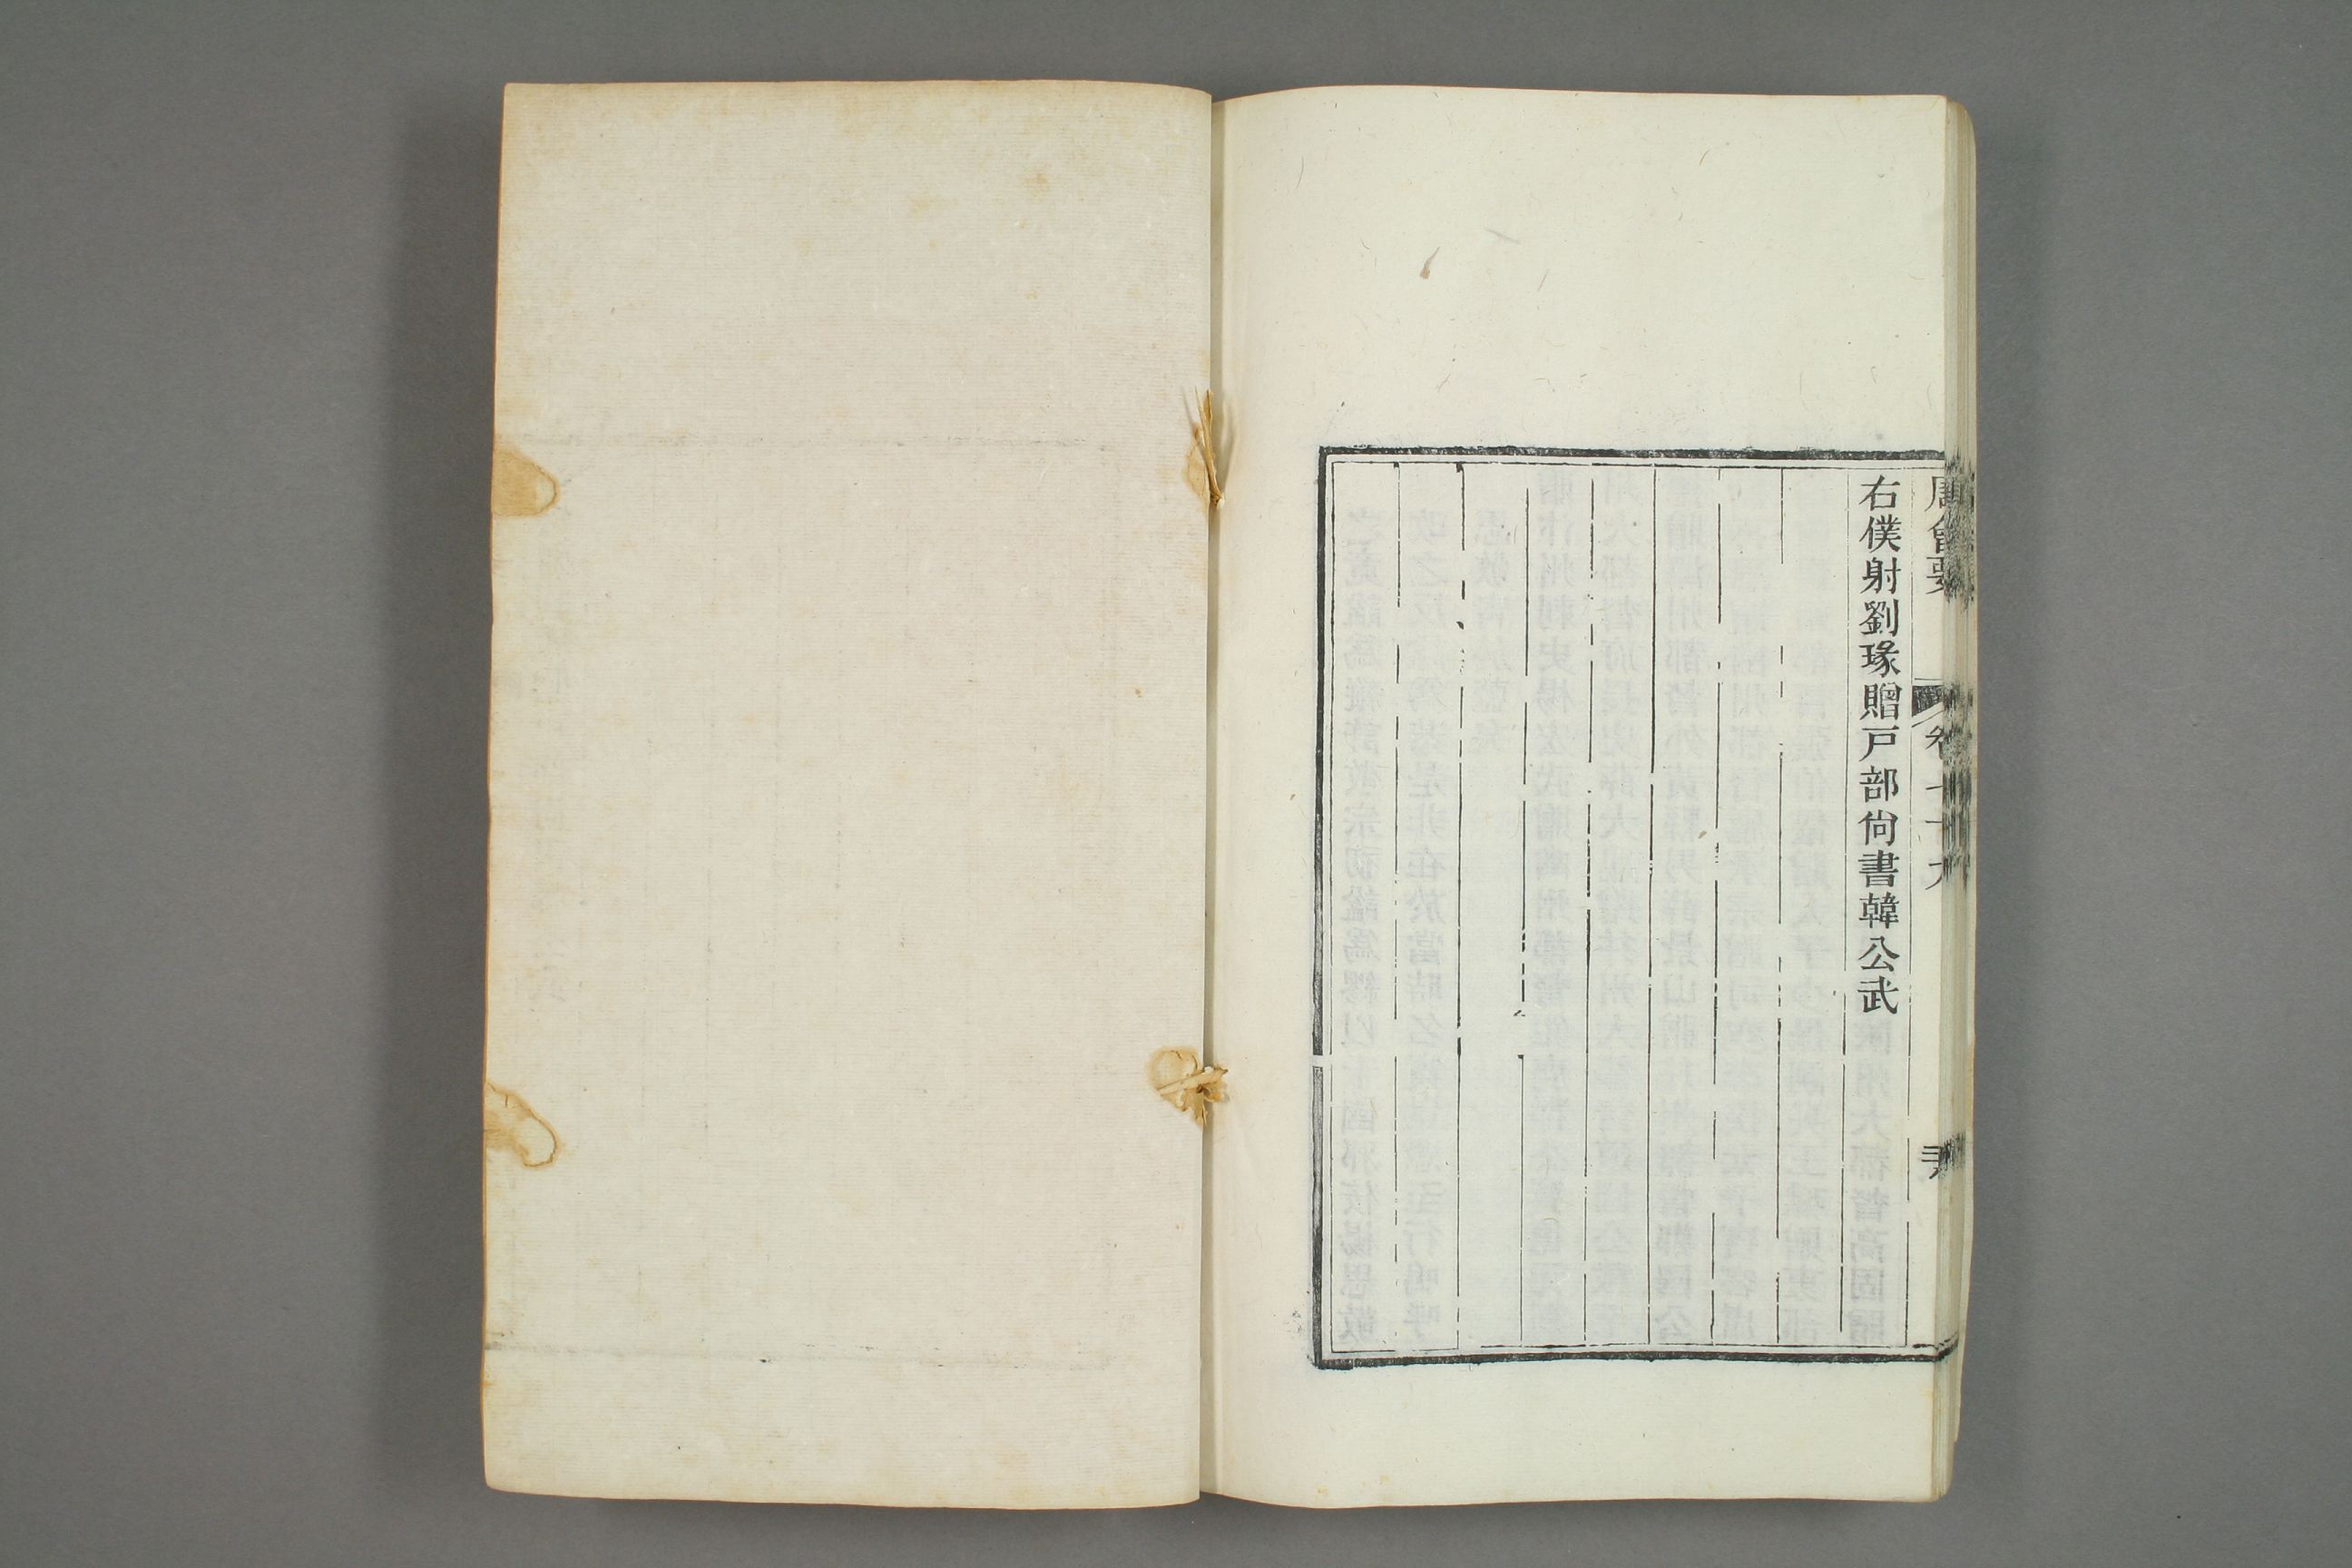 右僕射劉瑑贈戸部尙書韓公武
唐會要
卷七十九